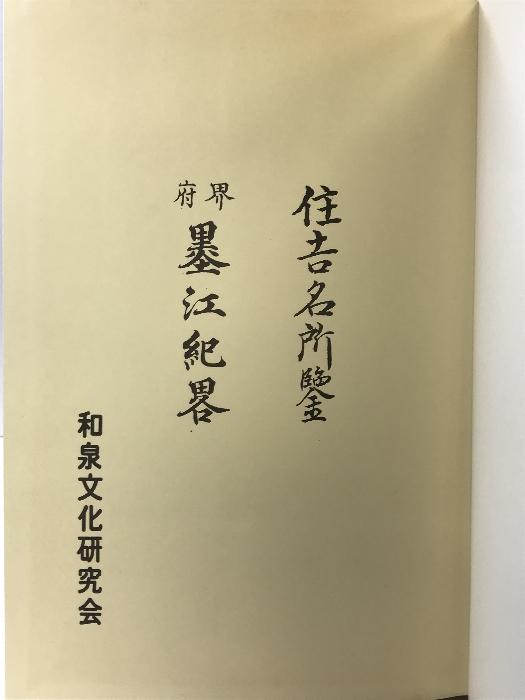 住吉名所鑒
界府 墨江紀畧
和泉文化研究会